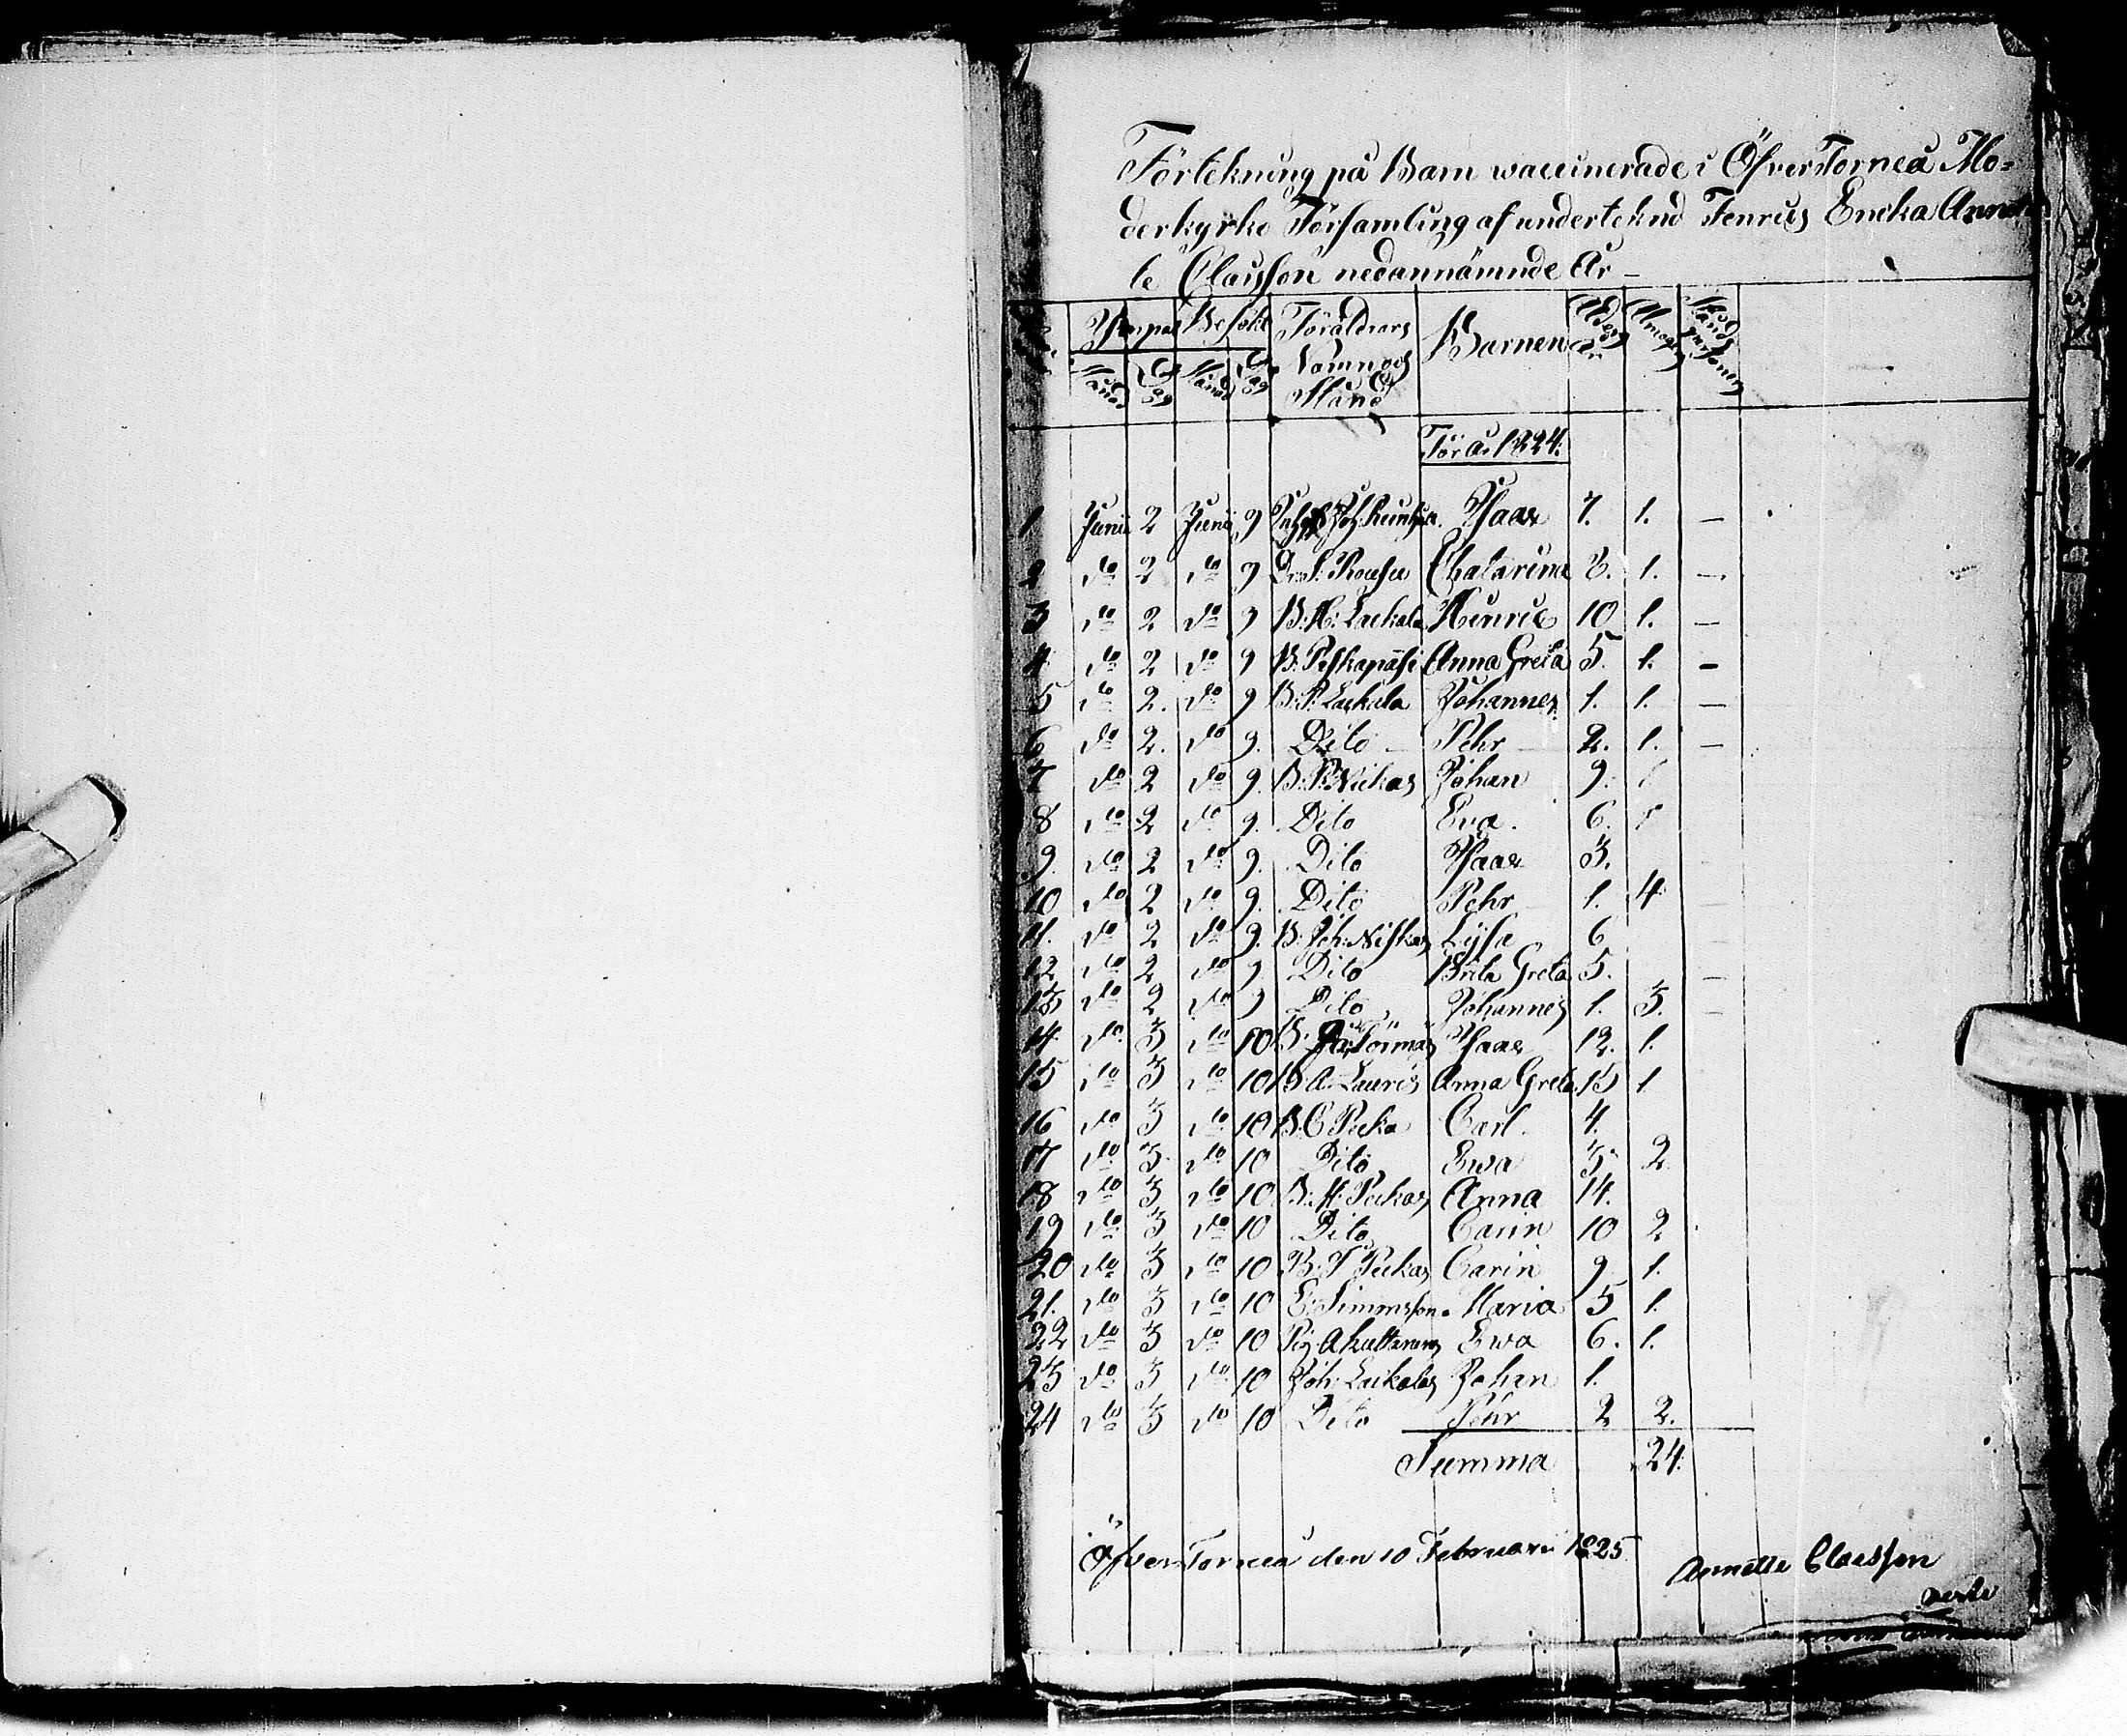 Förtekning på Barn waccinerade i ÖfverTorneå Mo=
derkyrko Församling af underteknad Encka Annet
te Claesson nedannämnde År -
Ympad Besökt Föräldrars Namn och Stånd Barnen Ålder År Almoge Stånds personer
Månad Dag Månad Dag
För År 1824.
1 Junii 2 Junii 9 Isaac 7. 1. -
2 do 2 do 9 Chatarina 8. 1. -
3 do 2 do 9 B. H: Laukala Henric 10 1. -
4 do 2 do 9 B: Anna Greta 5. 1. -
5 do 2. do 9 B: P: Laukala Johannes 1. 1. -
6 do 2. do 9. Dito - Pehr 2. 1. -
7 do 2 do 9. B: P: Niskas Johan 9.
8 do 2 do 9. Dito Eva. 6.
9. do 2 do 9. Dito Isaac 3.
10 do 2 do 9. Dito Pehr 1. 4
11. do 2 do 9. B: Joh: Niskas Lisa 6
12 do 2 do 9 Dito Brita Greta 5. -
13 do 2 do 9 Dito Johannes 1. 3. -
14 do 3 do 10 B: Törmäs Isaac 12. 1.
15 do 3 do 10 B A: Lauris Anna Greta 15 1
16 do 3 do 10 B. C Pecka Carl 4.
17 do 3 do 10 Dito Ewa 3 2
18 do 3 do 10 B: H: Peckas Anna 14.
19 do 3 do 10 Dito Carin 10 2
20 do 3 do 10 B: Peckas Carin 9 1.
21. do 3 do 10 E: Simmsson Maria 5 1.
22 do 3 do 10 Ewa 6. 1.
23 do 3 do 10 Joh: Laukalas Johan 1.
24 do 3 do 10 Dito Pehr 2 2.
Summa 24.
ÖfverTorneå den 10 Februari 1825
Annette Claesson